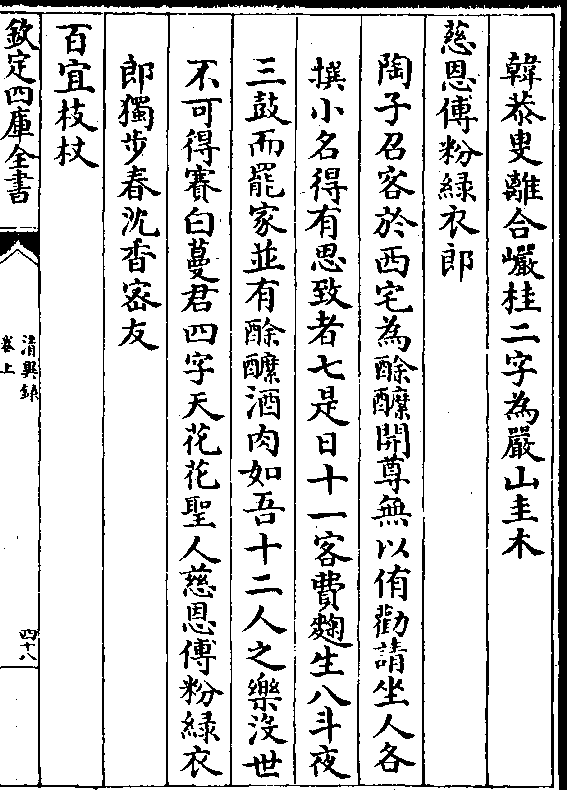 韓㳟叟離合巗桂二字為嚴山圭木
慈恩傅粉緑衣郎
陶子召客於西宅為酴醿開尊無以侑勸請坐人各
撰小名得有思致者七是日十一客費麴生八斗夜
三鼓而罷家並有酴醿酒肉如吾十二人之樂沒世
不可得賽白蔓君四字天花花聖人慈恩傅粉緑衣
郎獨步春沈香宻友
百宜枝杖
欽定四庫全書
清異録
卷上
四十八